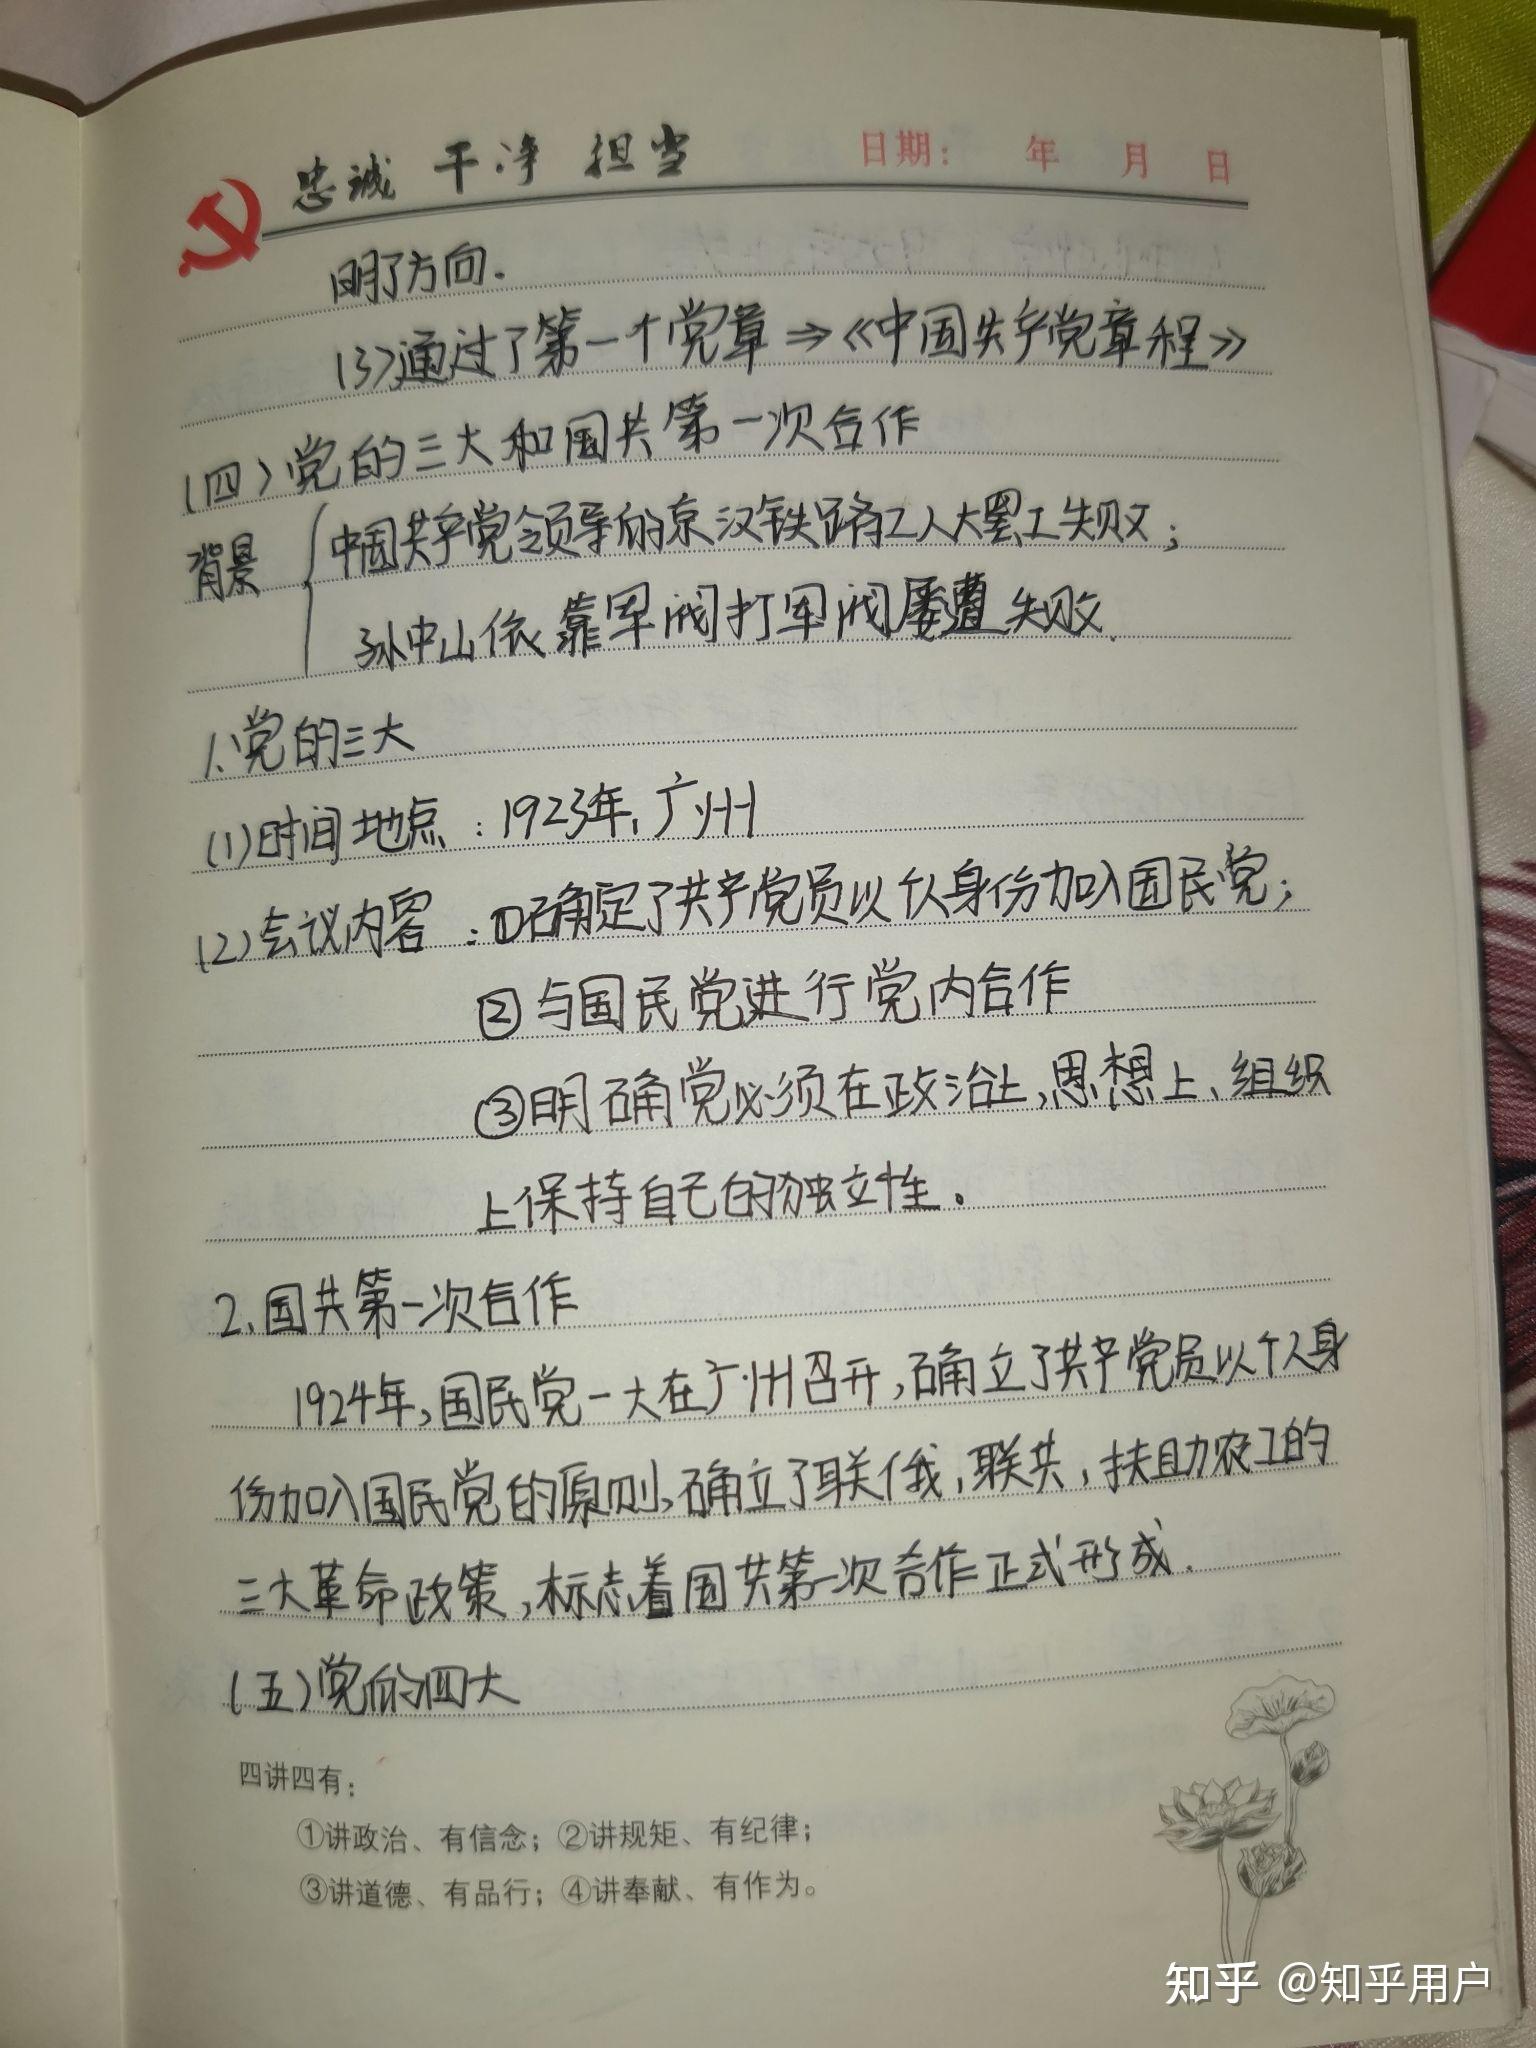 忠诚 干净 担当 日期: 年 月 日
明了方向.
(3)通过了第一个党章⇒《中国共产党章程》
(四)党的三大和国共第一次合作
背景 中国共产党领导的京汉铁路工人大罢工失败;
孙中山依靠军阀打军阀屡遭失败.
1、党的三大
(1)时间地点:1923年,广州
(2)会议内容:①确定了共产党员以个人身份加入国民党;
②与国民党进行党内合作
③明确党必须在政治上,思想上、组织
上保持自己的独立性.
2.国共第一次合作
1924年,国民党一大在广州召开,确立了共产党员以个人身
份加入国民党的原则,确立了联俄,联共,扶助农工的
三大革命政策,标志着国共第一次合作正式形成.
(五)党的四大
四讲四有:
①讲政治、有信念;②讲规矩、有纪律;
③讲道德、有品行;④讲奉献、有作为。
知乎 @知乎用户